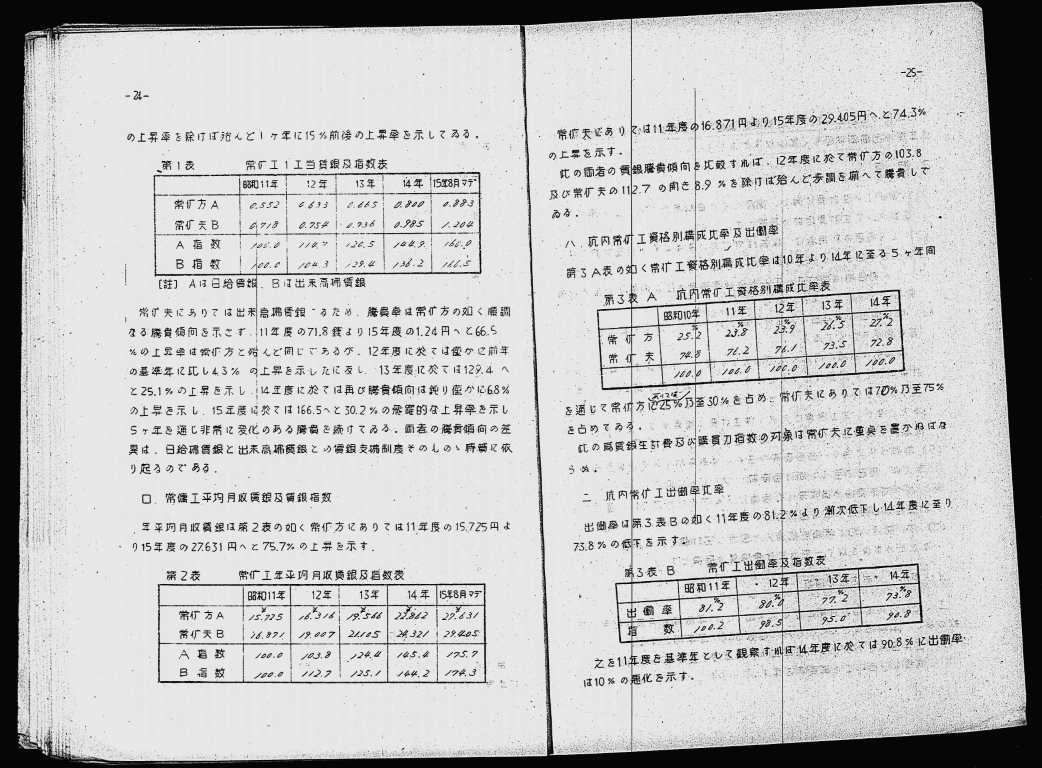 -24-
の上昇率を除けば殆んど1ヶ年に15%前後の上昇率を示してゐる。
第1表 常圹工1工当賃銀及指数表
昭和11年 12年 13年 14年 15年8月マデ
常圹方A 0.552 0.633 0.665 0.800 0.883
常圹夫B 0.718 0.754 0.936 0.985 1.204
A指数 100.0 114.7 120.5 144.9 160.0
B指数 100.0 104.3 129.4 136.2 166.5
〔註〕 Aは日給賃銀、Bは出来高払賃銀
常圹夫にありては出来高払賃銀 るため、騰貴率は常圹方の如く順調
なる騰貴傾向を示さず、11年度の71.8銭より15年度の1.24円へと66.5
%の上昇率は常圹方と殆んど同じであるが、12年度に於ては僅かに前年
の基準年に比し4.3% の上昇を示したに反し、13年度に於ては129.4 へ
と25.1%の上昇を示し、14年度に於ては再び騰貴傾向は鈍り僅かに6.8%
の上昇を示し、15年度に於ては166.5へと30.2%の飛躍的な上昇率を示し
5ヶ年を通じ非常に変化のある騰貴を続けてゐる。両者の騰貴傾向の差
異は、日給払賃銀と出来高払賃銀との賃銀支払制度そのものゝ特質に依
り起るのである。
ロ、常傭工平均月収賃銀及賃銀指数
年平均月収賃銀は第2表の如く常圹方にありては11年度の15.725円よ
り15年度の27.631円へと75.7%の上昇を示す。
第2表 常圹工年平均月収賃銀及指数表
昭和11年 12年 13年 14年 15年8月マデ
常圹方A 15.725 16.316 19.566 22.862 27.631
常圹夫B 16.871 19.007 21.105 24.321 29.405
A指数 100.0 103.8 124.4 145.4 175.7
B指数 100.0 112.7 125.1 144.2 174.3
-25-
常圹夫にありては11年度の16.871円より15年度の29.405円へと74.3%
の上昇を示す。
此の両者の賃銀騰貴傾向を比較すれば、12年度に於て常圹方の103.8
及び常圹夫の112.7 の開き8.9 %を除けば殆んど歩調を揃へて騰貴して
ゐる。
ハ、坑内常圹工資格別構成比率及出働率
第3A表の如く常圹工資格別構成比率は10年より14年に至る5ヶ年間
第3表 A 坑内常圹工資格別構成比率表
昭和10年 11年 12年 13年 14年
常圹方 25.2% 23.8% 23.9% 26.5% 27.2%
常圹夫 74.8 76.2 76.1 73.5 72.8
100.0 100.0 100.0 100.0 100.0
を通じて常圹方に25%乃至30%を占め、常圹夫にありては70%乃至75%
を占めてゐる。
此の為賃銀生計費及び購買力指数の対象は常圹夫に重央を置かねばな
らぬ。
二、坑内常圹工出働率比率
出働率は第3表Bの如く11年度の81.2%より漸次低下し14年度に至り
73.8%の低下を示す。
第3表 B 常圹工出働率及指数表
昭和11年 12年 13年 14年
出働率 81.2% 80.0% 77.2% 73.8%
指数 100.2 98.5 95.0 90.8
之を11年度を基準年として観察すれば14年度に於ては90.8%に出働率
は10%の悪化を示す。